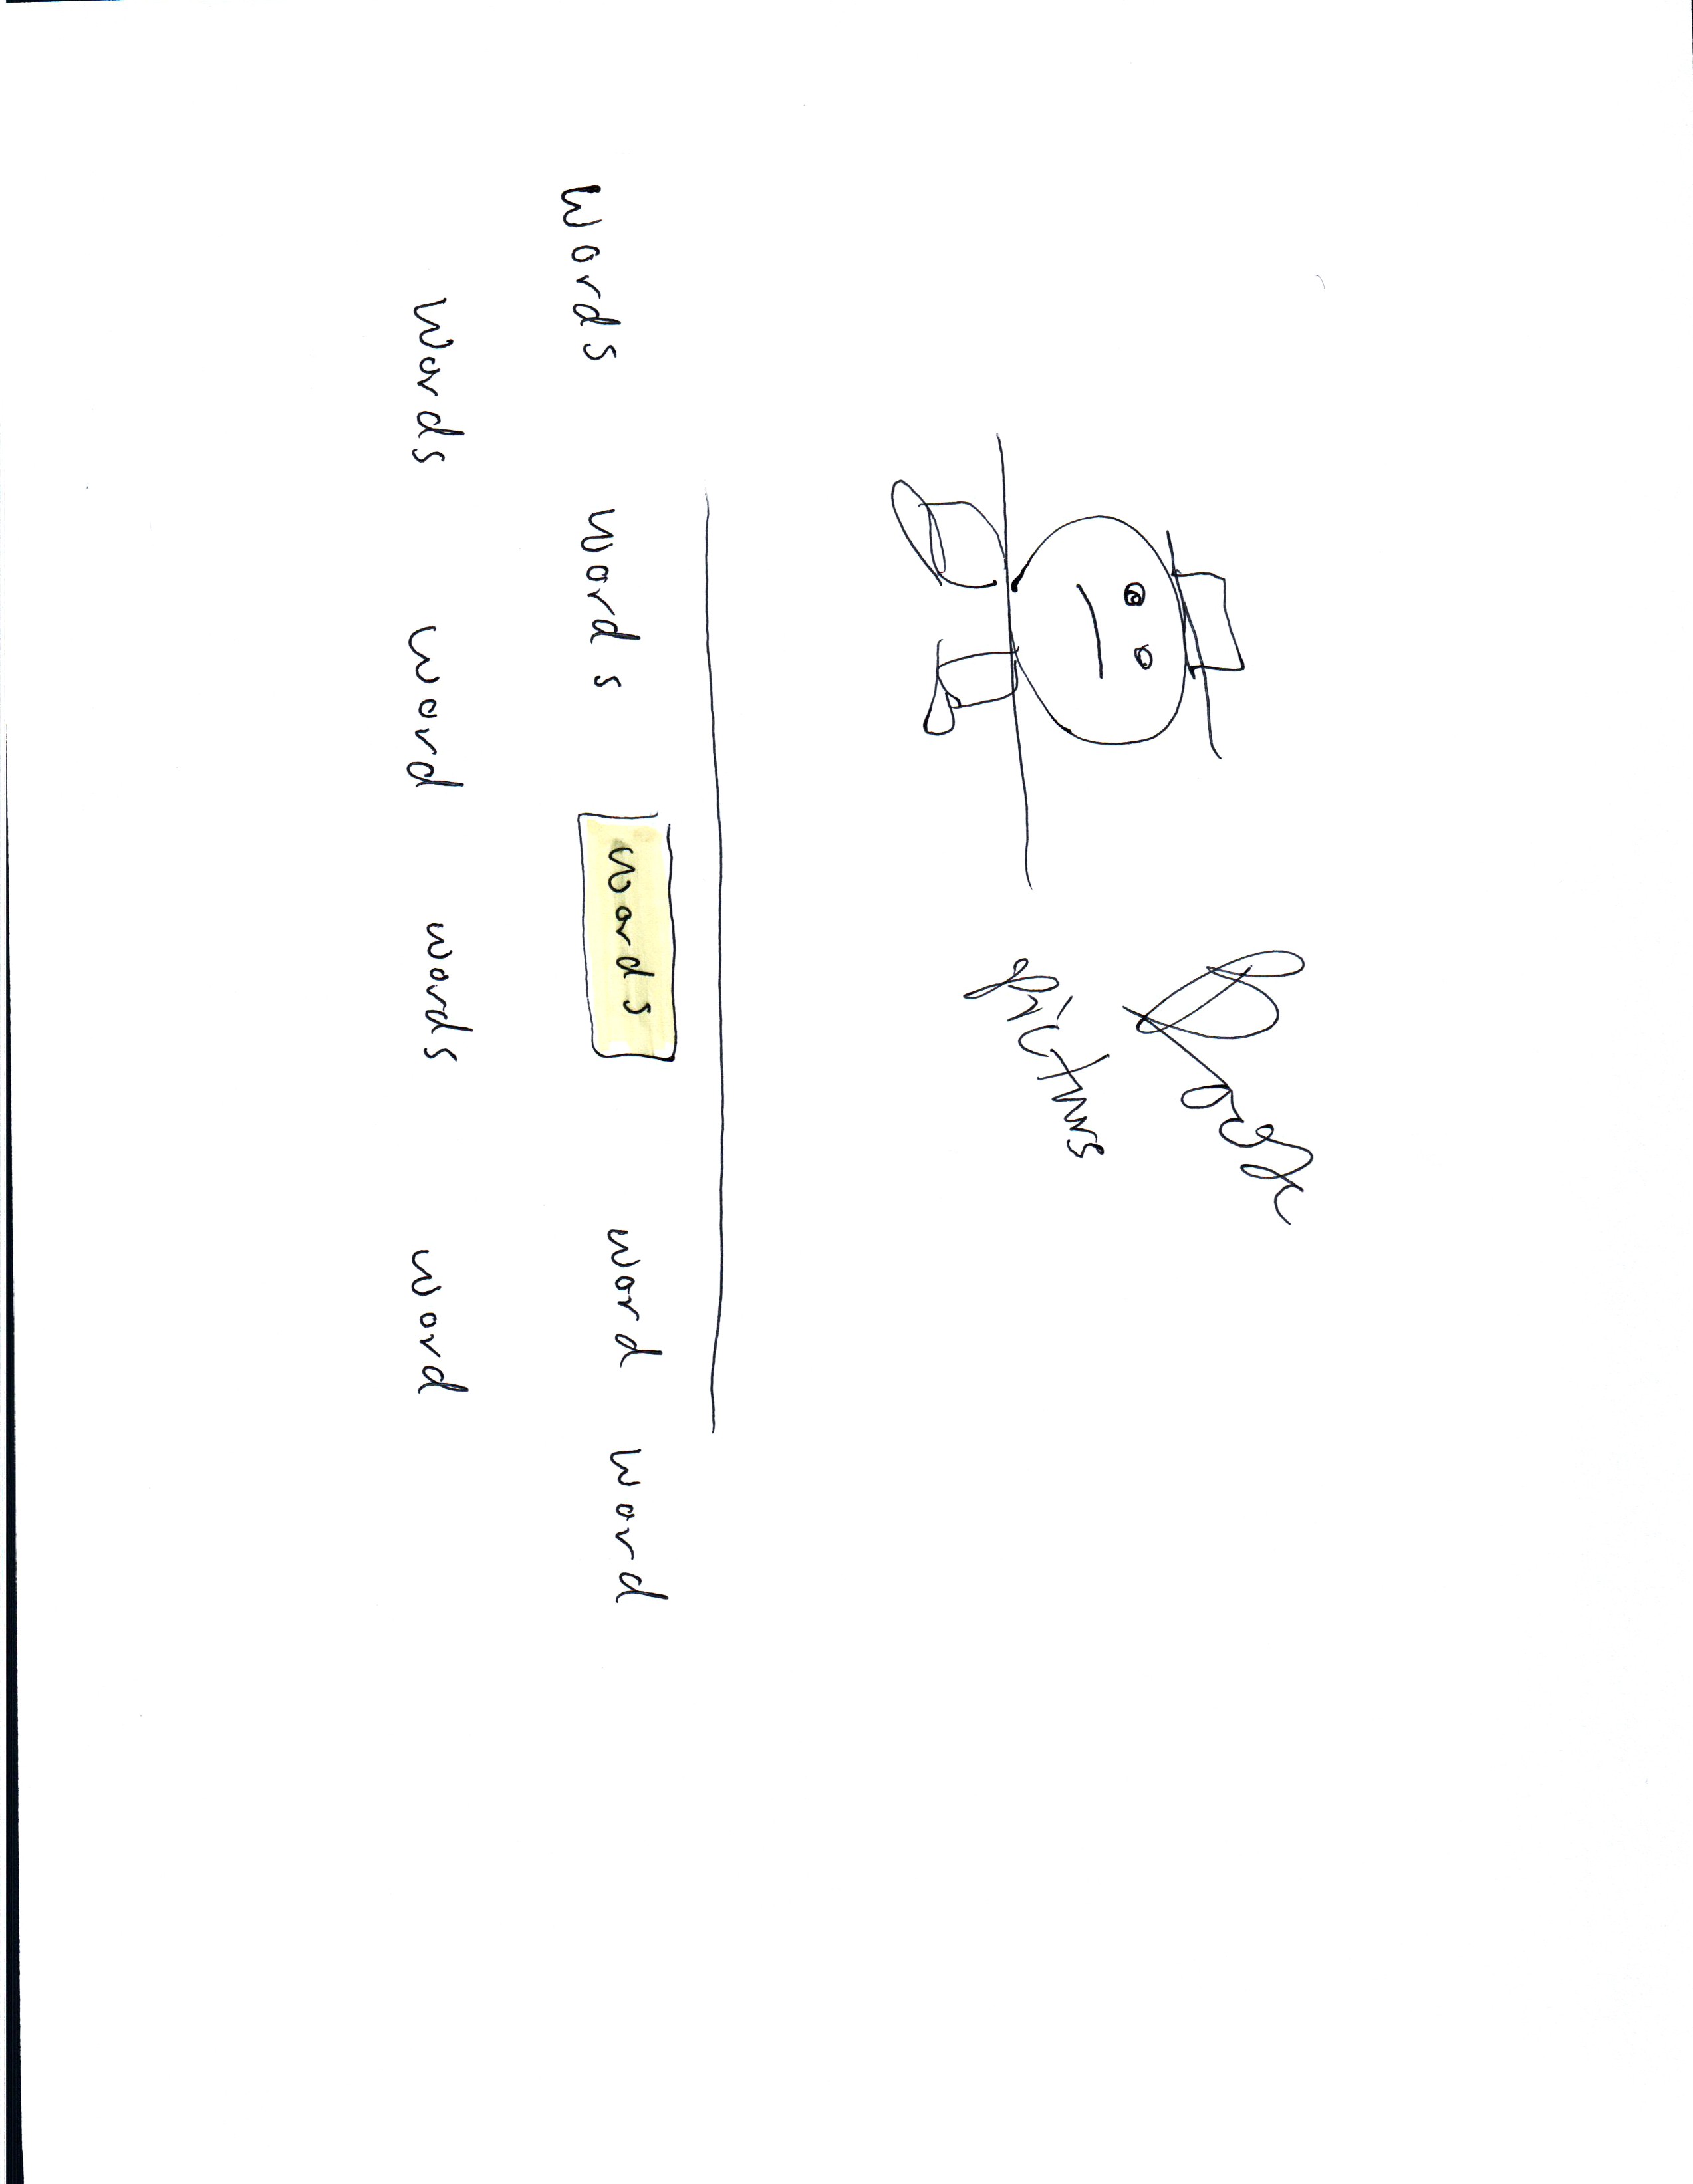 Pictures
Words words words word word
Words word words word